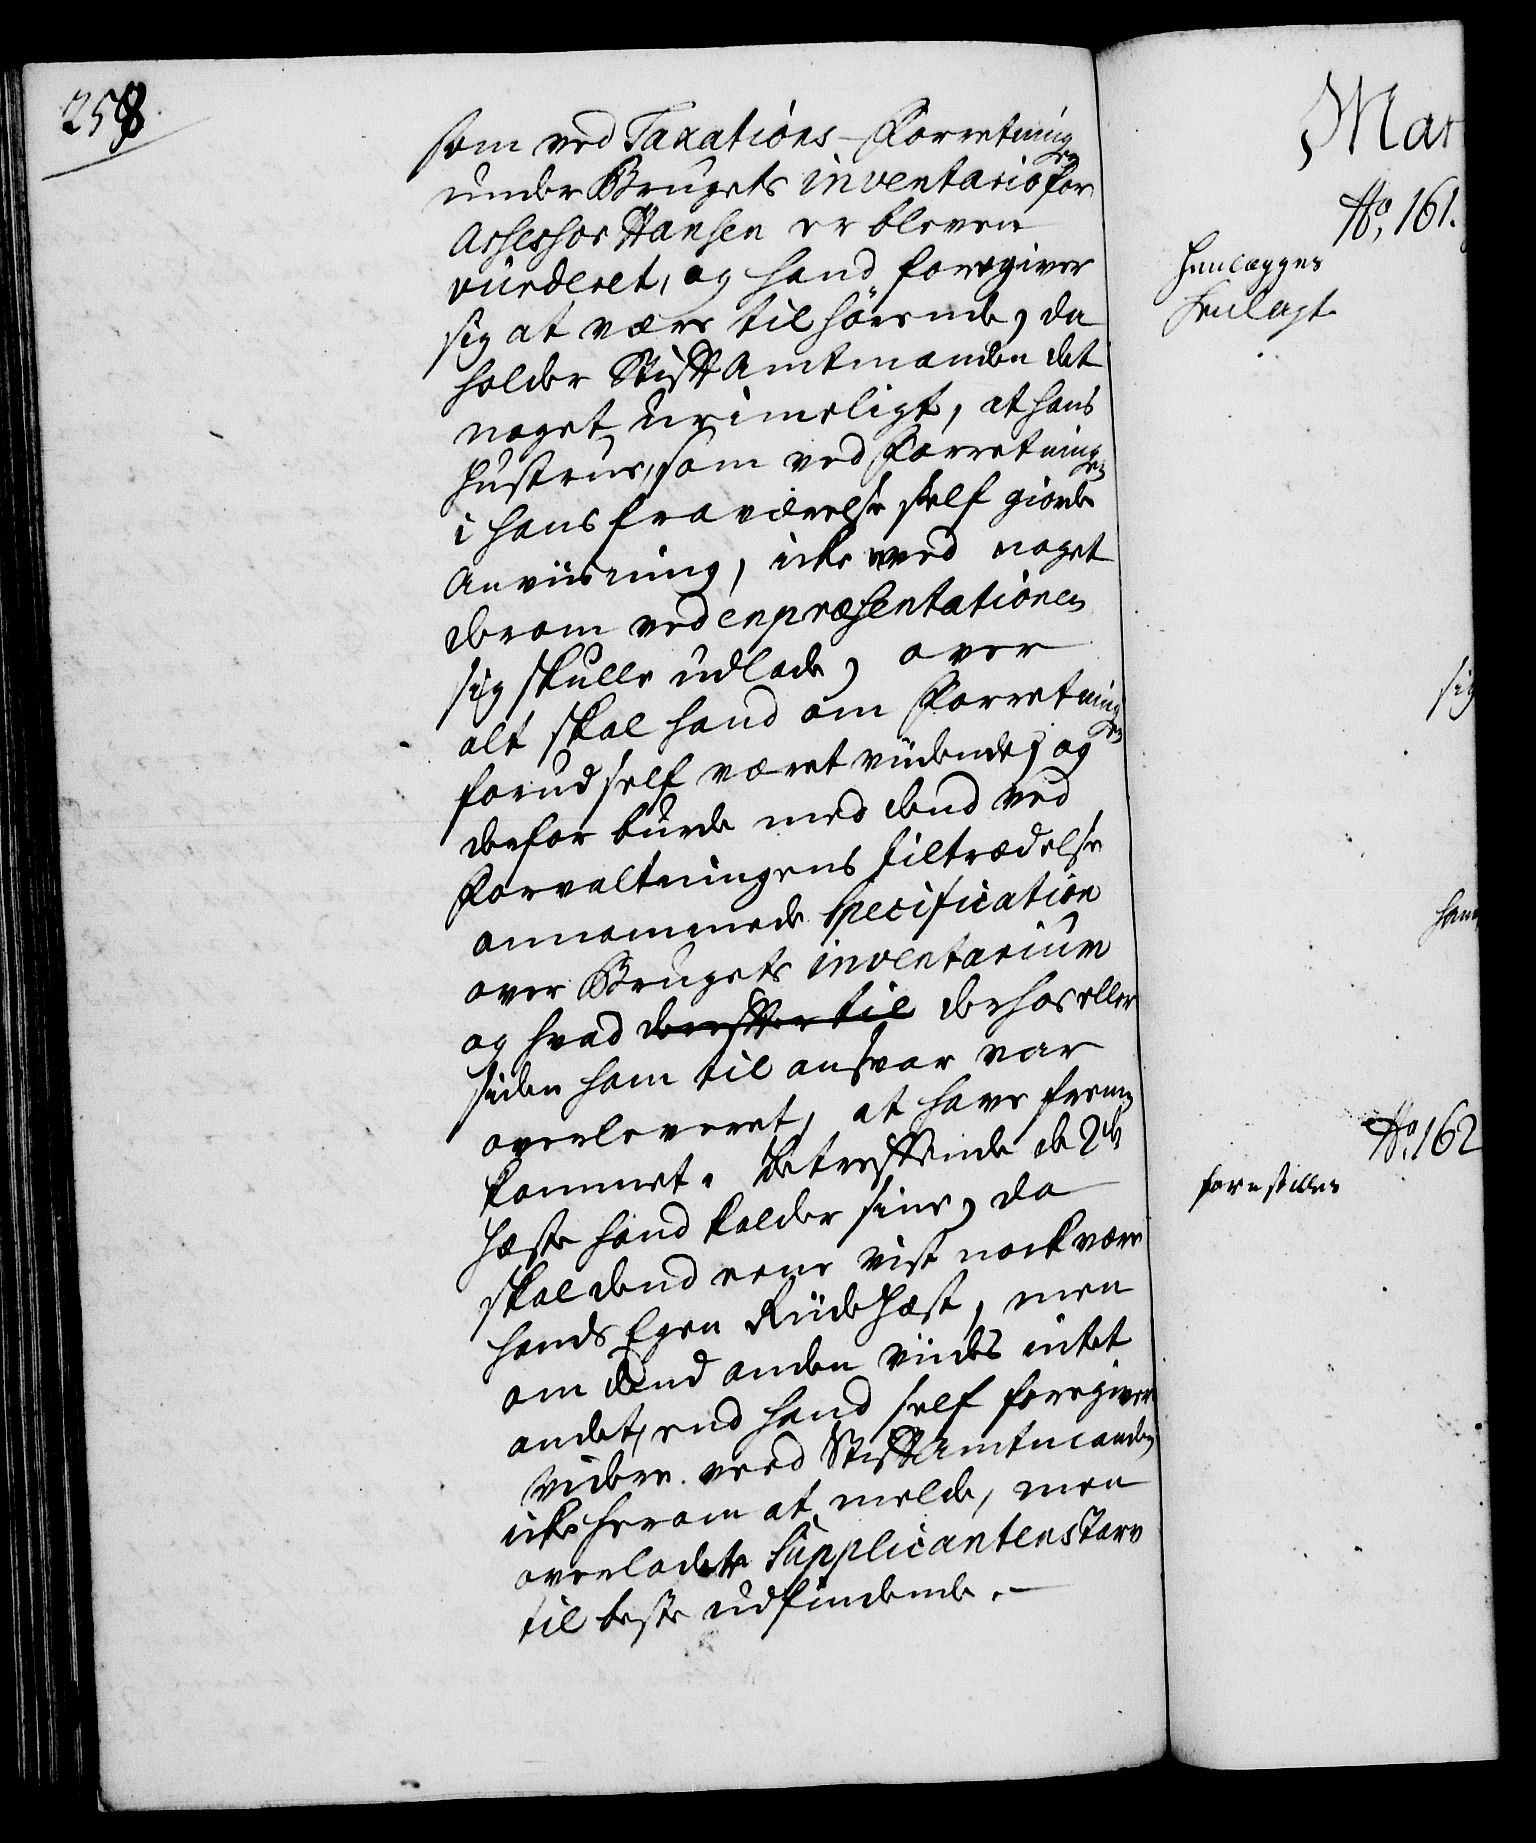 258.
som ved Taxations-Forretningen
under Brugets inventario for
Assessor Hansen er bleven
vurderet, og hand foregiver
sig at være tilhörende, da
holder Stiftamtmanden det
noget urimeligt, at hans
Hustrue, som ved Forretningen
i hans fraværelse self giorde
Anviisning, icke med noget
derom ved enpræsentationen
sig skulle udlade, over
alt skal hand om Forretningen
forud self været viidende, og
derfor burde med dend ved
Forvaltningens tiltrædelse
annammede Specification
over Brugets inventarium
og hvad derefter til derhos eller
siden ham til ansvar var
overleveret, at have frem
kommet. Betreffende de 2de
Hæste hand kalder sine, da
skal dend eene vist nock være
hands Egen Riide Hæst, men
om dend anden viides intet
andet, end hand self foregiver
videre veed Stiftamtmanden
icke herom at melde, men
overlader Supplicantens Tarv
til beste udfindende.
Mar
No. 161.
Henlægges
henlagt
sig
ham
No. 162
forestilles